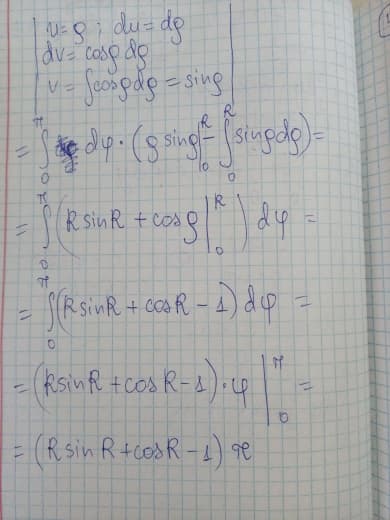 u=ρ ; du=dρ
dv= cosρ dρ
v = ∫cosρdρ = sinρ
= ∫₀^π dφ · (ρ sinρ|₀^R − ∫₀^R sinρdρ)=
= ∫₀^π (R sinR + cosρ|₀^R) dφ =
= ∫₀^π (R sinR + cosR − 1) dφ =
= (R sinR + cosR − 1)·φ|₀^π =
= (R sin R + cosR − 1) π